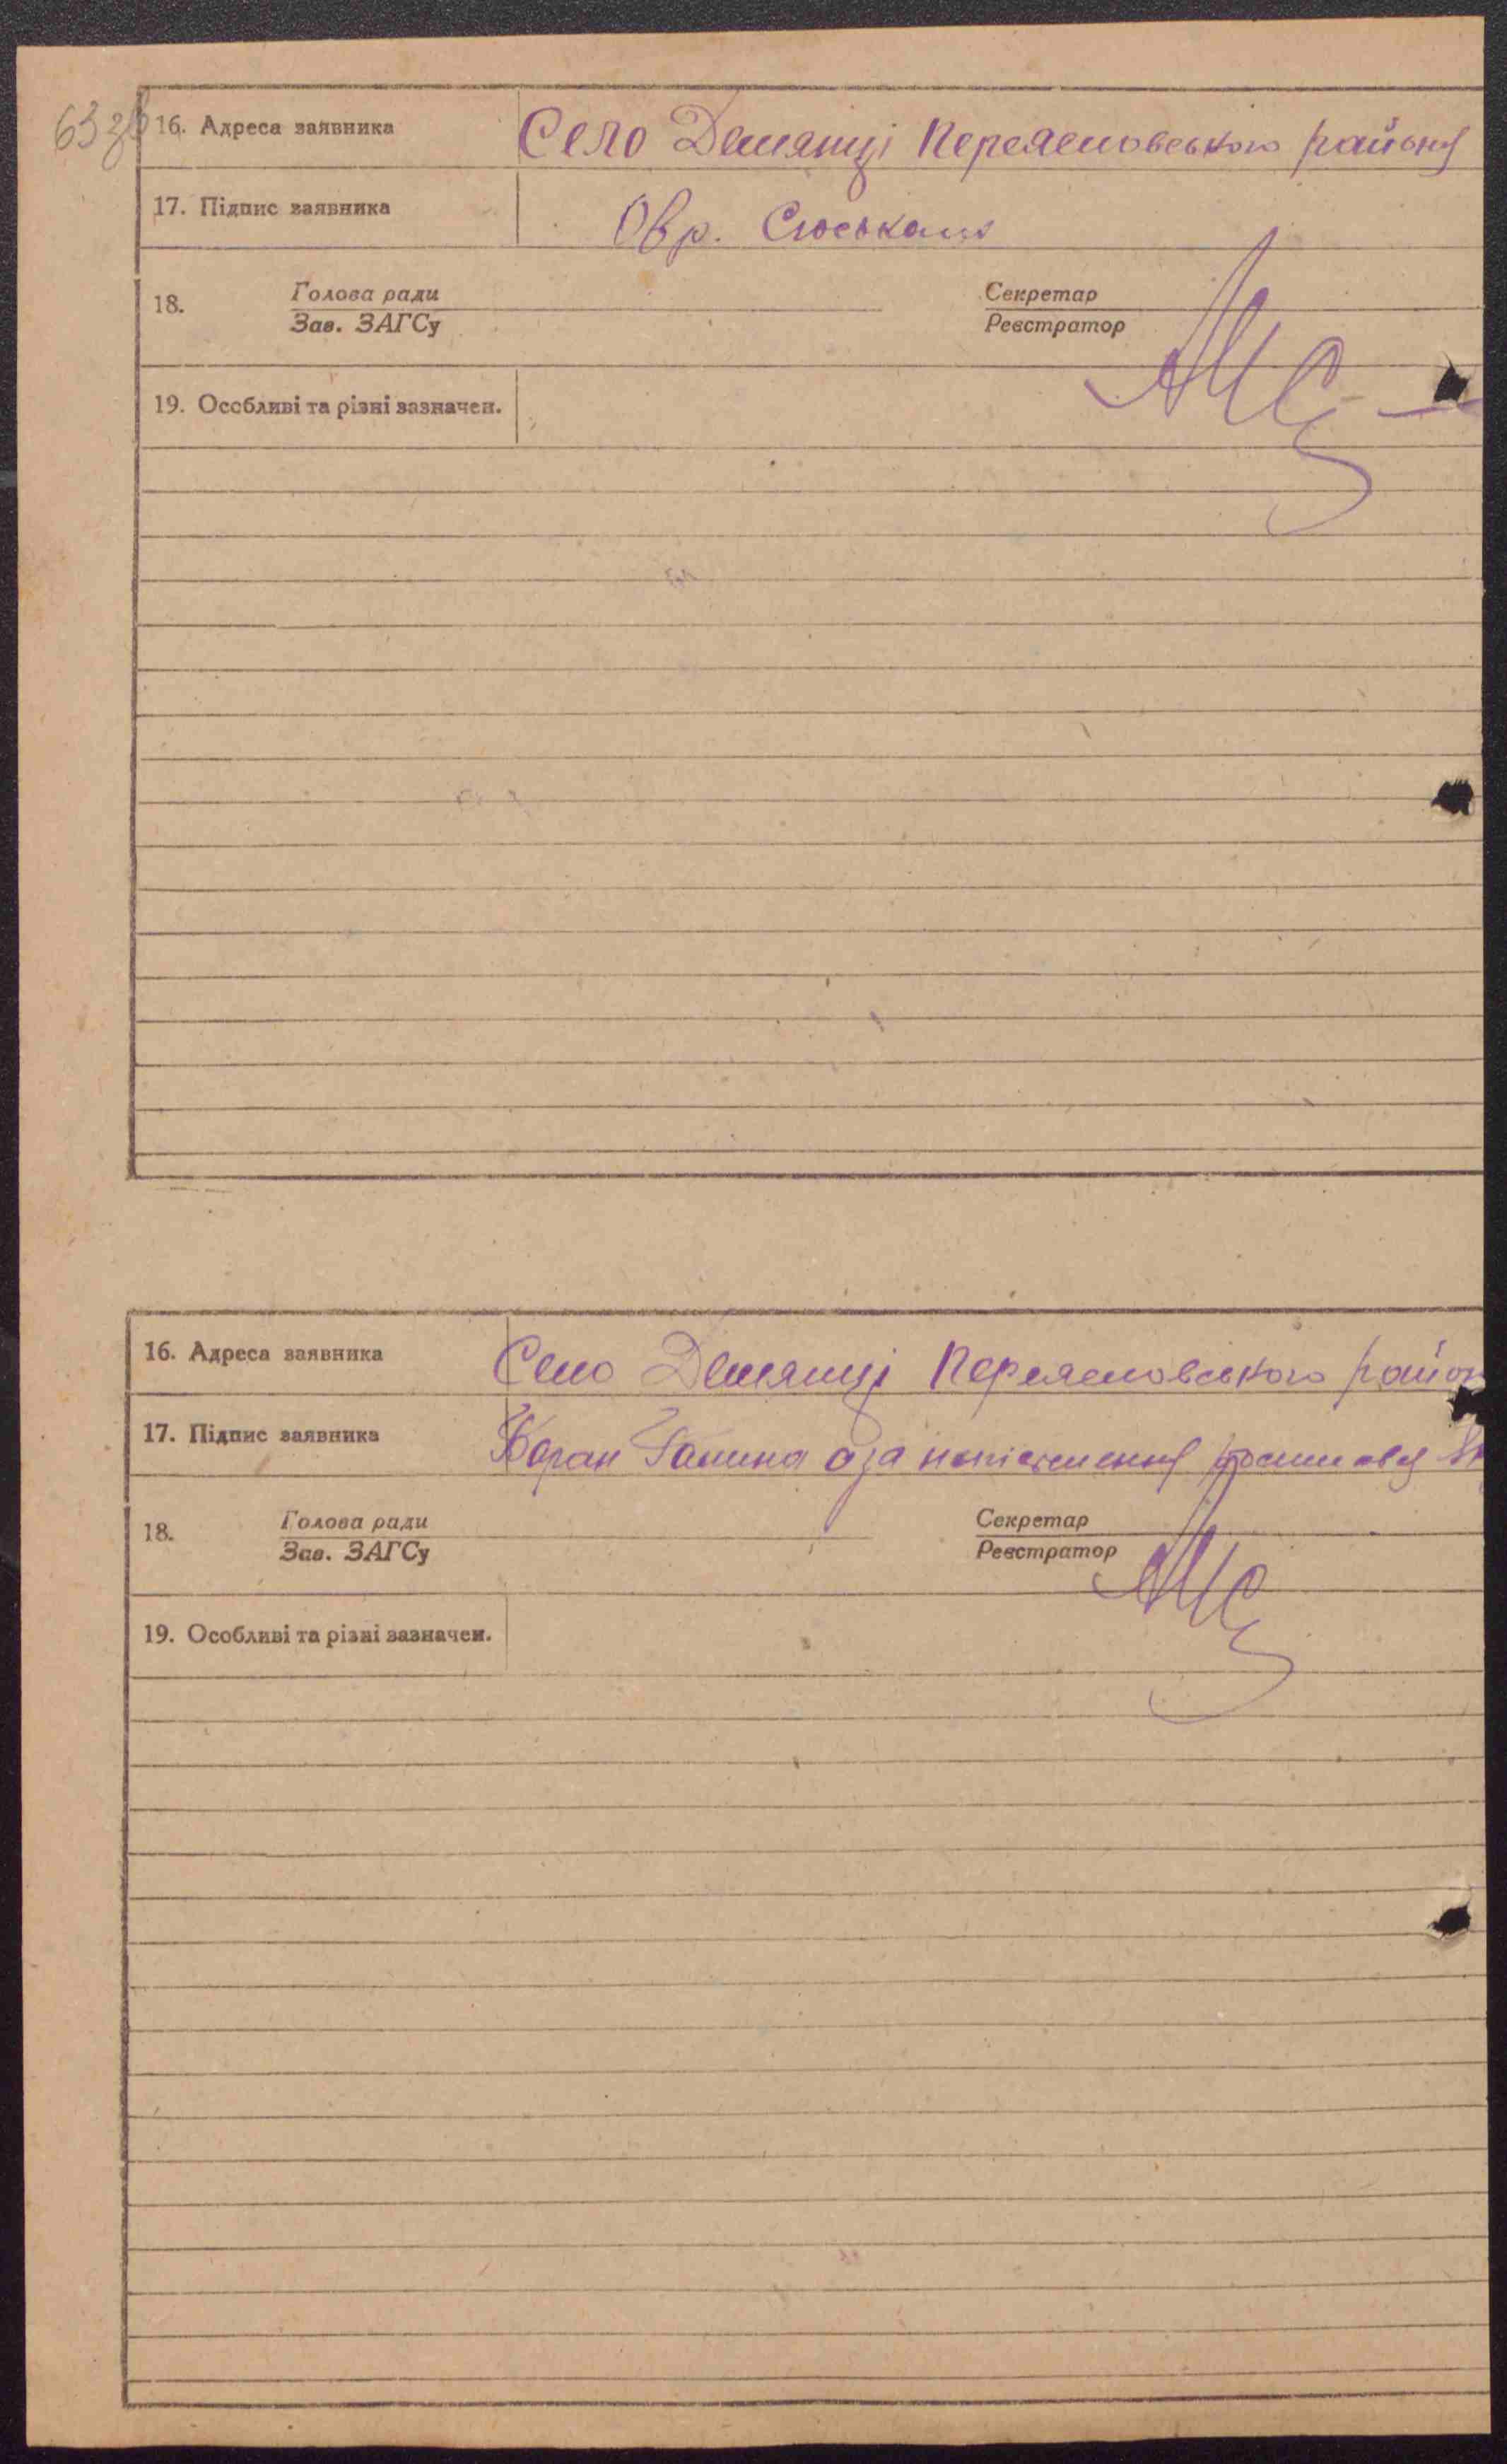 63зв
16. Адреса заявника Село Демянці Переясловського району
17. Підпис заявника Овр. Сюською
18. Голова ради Секретар
Зав. ЗАГСу Реєстратор
19. Особливі та різні зазначен.
16. Адреса заявника Село Демянці Переясловського район
17. Підпис заявника Баран Ганна а за неписменну
18. Голова ради Секретар
Зав. ЗАГСу Реєстратор
19. Особливі та різні зазначен.